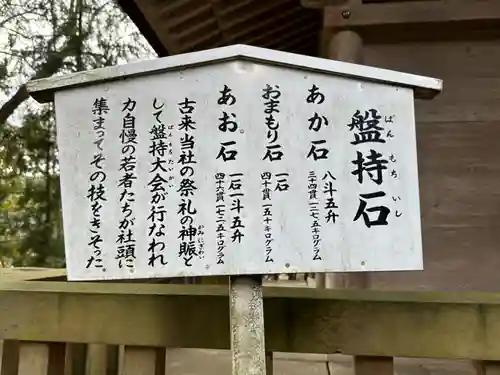 盤持石
ばんもちいし
あか石 八斗五升
三十四貫 一二七・五キログラム
おまもり石 一石
四十貫 一五十キロ
あお石 一石一斗五升
四十六貫 一七二・五キログラム
古来当社の祭礼の神賑と
かみにぎわい
して盤持大会が行なわれ
ばんもちたいかい
力自慢の若者たちが社頭に
集まってその技をきそった。